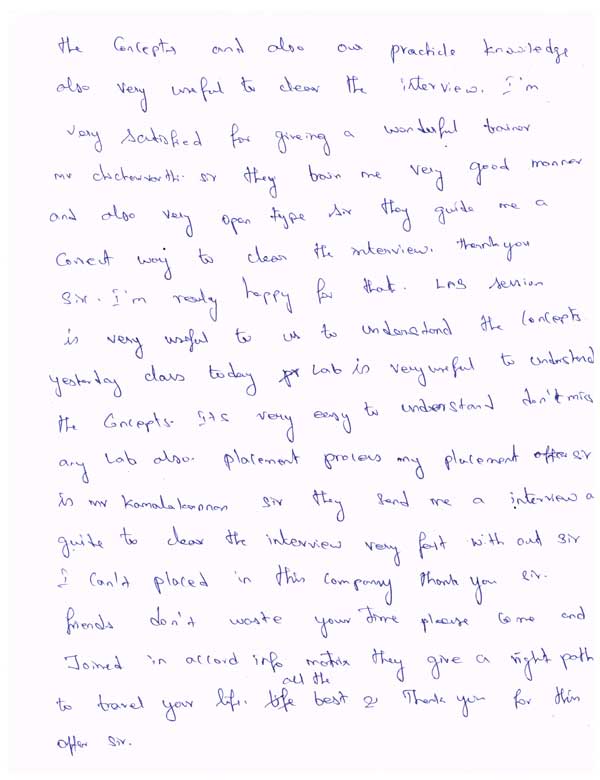 the Concepts and also our practicle knowledge
also very useful to clear the interview. I'm
very satisfied for giveing a wonderful trainer
mr chichervarthi sir they train me very good manner
and also very open type sir they guide me a
Correct way to clear the interview. thank you
Sir. I'm really happy for that. LAB session
is very useful to us to understand the Concepts
yesterday class today Lab is very useful to understand
the Concepts. It's very easy to understand don't miss
any Lab also. placement process my placement sir
is mr Kamalakannan sir they send me a interview a
guide to clear the interview very fast with out sir
I can't placed in this company Thank you sir.
friends don't waste your time please come and
Joined in accord info matrix they give a right path
to travel your life. all the best Thank you for this
offer sir.